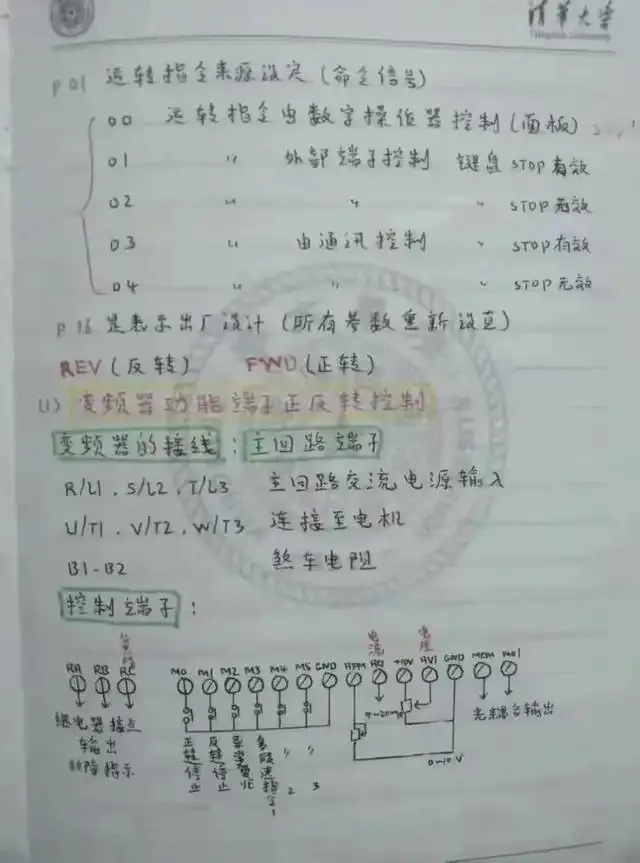 清华大学
Tsinghua University
P01 运转指令来源设定(命令信号)
00 运转指令由数字操作器控制(面板)
01 〃 外部端子控制 键盘 STOP有效
02 〃 〃 〃 STOP无效
03 〃 由通讯控制 〃 STOP有效
04 〃 〃 〃 STOP无效
P76 是表示出厂设计(所有参数重新设置)
REV(反转) FWD(正转)
(1) 变频器功能端子正反转控制
变频器的接线:主回路端子
R/L1、S/L2、T/L3 主回路交流电源输入
U/T1、V/T2、W/T3 连接至电机
B1-B2 煞车电阻
控制端子:
电流 电压
RA RB RC M0 M1 M2 M3 M4 M5 GND AFM +10V AVI GND MCM MO1
继电器接点
输出
故障指示
4~20mA
光耦合输出
0~10V
正转停止
反转停止
多段速指令1
〃 2
〃 3